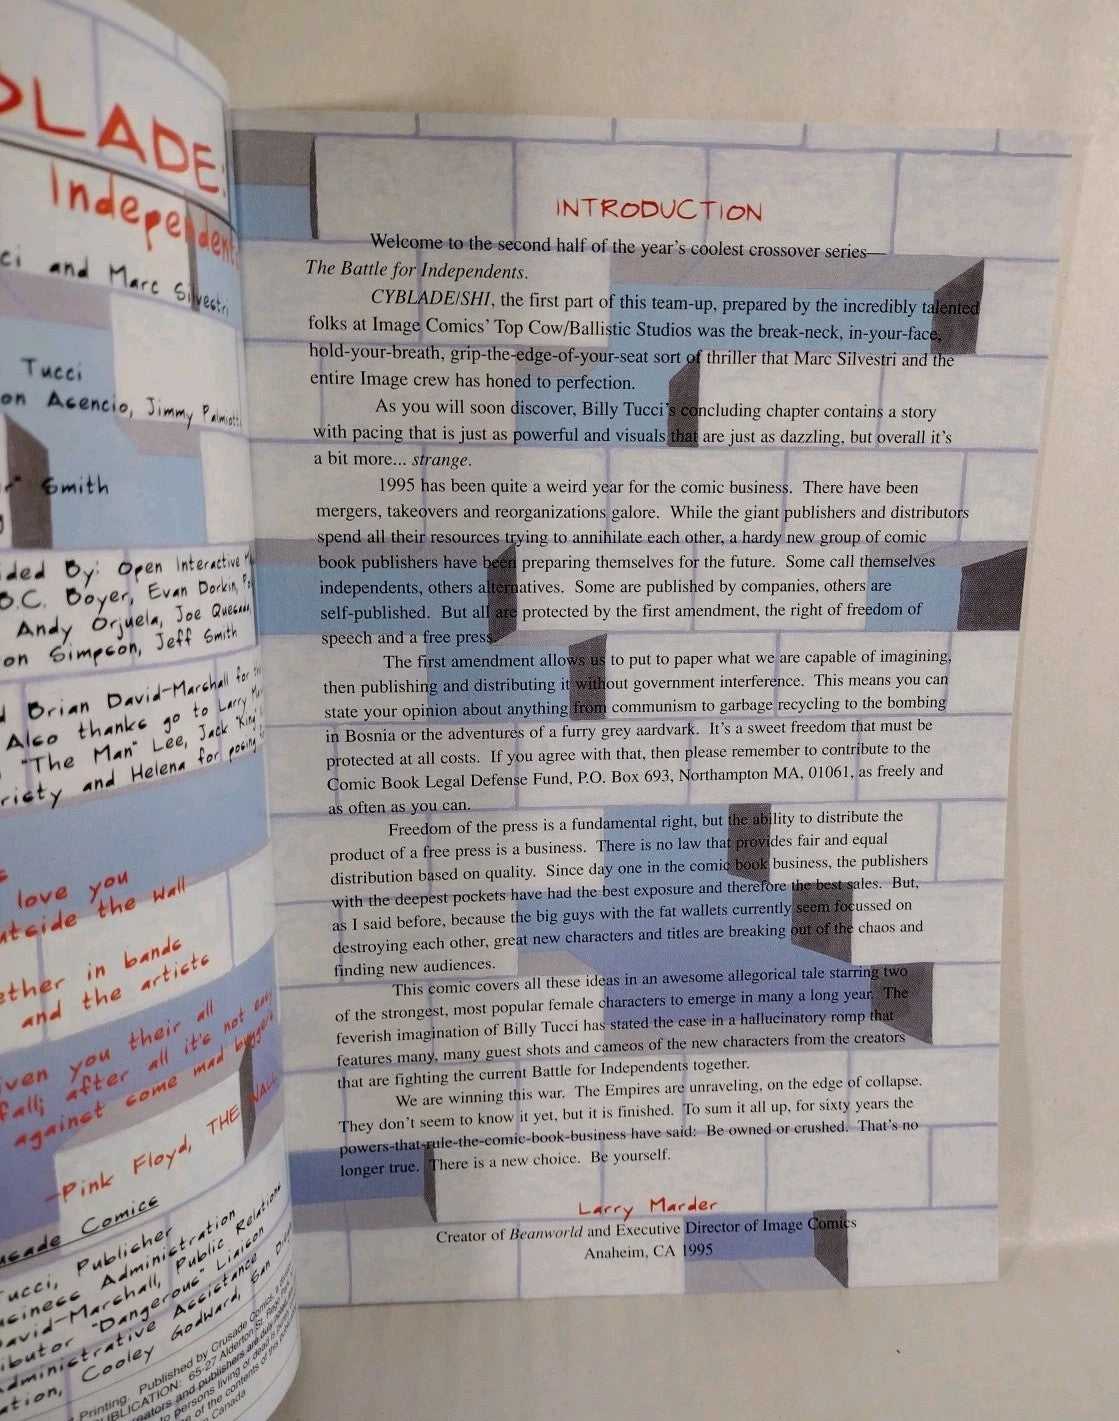 LADE:
Independent
ci and Marc Silvestri
Tucci
on Asencio, Jimmy Palmiotti
Smith
ded By: Open Interactive
D.C. Boyer, Evan Dorkin,
Andy Orjuela, Joe Quesada,
on Simpson, Jeff Smith
d Brian David-Marshall for
Also thanks go to Larry
"The Man" Lee, Jack "King"
risty and Helena for posing
love you
utside the wall
ether in bands
and the artists
iven you their all
fall; after all it's not easy
against some mad buggers
WALL
—Pink Floyd, THE WALL
usade Comics
Tucci, Publisher
siness Administration
David-Marshall, Public Relations
ibutor "Dangerous" Liaison
dministrative Assistance
ation, Cooley Godward,
Printing. Published by Crusade Comics,
PUBLICATION: 65-27 Alderton St. Rego
eators and publishers are
to persons living or dead is
of the contents of this
Canada
INTRODUCTION
Welcome to the second half of the year's coolest crossover series—
The Battle for Independents.
CYBLADE/SHI, the first part of this team-up, prepared by the incredibly talented
folks at Image Comics' Top Cow/Ballistic Studios was the break-neck, in-your-face,
hold-your-breath, grip-the-edge-of-your-seat sort of thriller that Marc Silvestri and the
entire Image crew has honed to perfection.
As you will soon discover, Billy Tucci's concluding chapter contains a story
with pacing that is just as powerful and visuals that are just as dazzling, but overall it's
a bit more... strange.
1995 has been quite a weird year for the comic business. There have been
mergers, takeovers and reorganizations galore. While the giant publishers and distributors
spend all their resources trying to annihilate each other, a hardy new group of comic
book publishers have been preparing themselves for the future. Some call themselves
independents, others alternatives. Some are published by companies, others are
self-published. But all are protected by the first amendment, the right of freedom of
speech and a free press.
The first amendment allows us to put to paper what we are capable of imagining,
then publishing and distributing it without government interference. This means you can
state your opinion about anything from communism to garbage recycling to the bombing
in Bosnia or the adventures of a furry grey aardvark. It's a sweet freedom that must be
protected at all costs. If you agree with that, then please remember to contribute to the
Comic Book Legal Defense Fund, P.O. Box 693, Northampton MA, 01061, as freely and
as often as you can.
Freedom of the press is a fundamental right, but the ability to distribute the
product of a free press is a business. There is no law that provides fair and equal
distribution based on quality. Since day one in the comic book business, the publishers
with the deepest pockets have had the best exposure and therefore the best sales. But,
as I said before, because the big guys with the fat wallets currently seem focussed on
destroying each other, great new characters and titles are breaking out of the chaos and
finding new audiences.
This comic covers all these ideas in an awesome allegorical tale starring two
of the strongest, most popular female characters to emerge in many a long year. The
feverish imagination of Billy Tucci has stated the case in a hallucinatory romp that
features many, many guest shots and cameos of the new characters from the creators
that are fighting the current Battle for Independents together.
We are winning this war. The Empires are unraveling, on the edge of collapse.
They don't seem to know it yet, but it is finished. To sum it all up, for sixty years the
powers-that-rule-the-comic-book-business have said: Be owned or crushed. That's no
longer true. There is a new choice. Be yourself.
Larry Marder
Creator of Beanworld and Executive Director of Image Comics
Anaheim, CA 1995